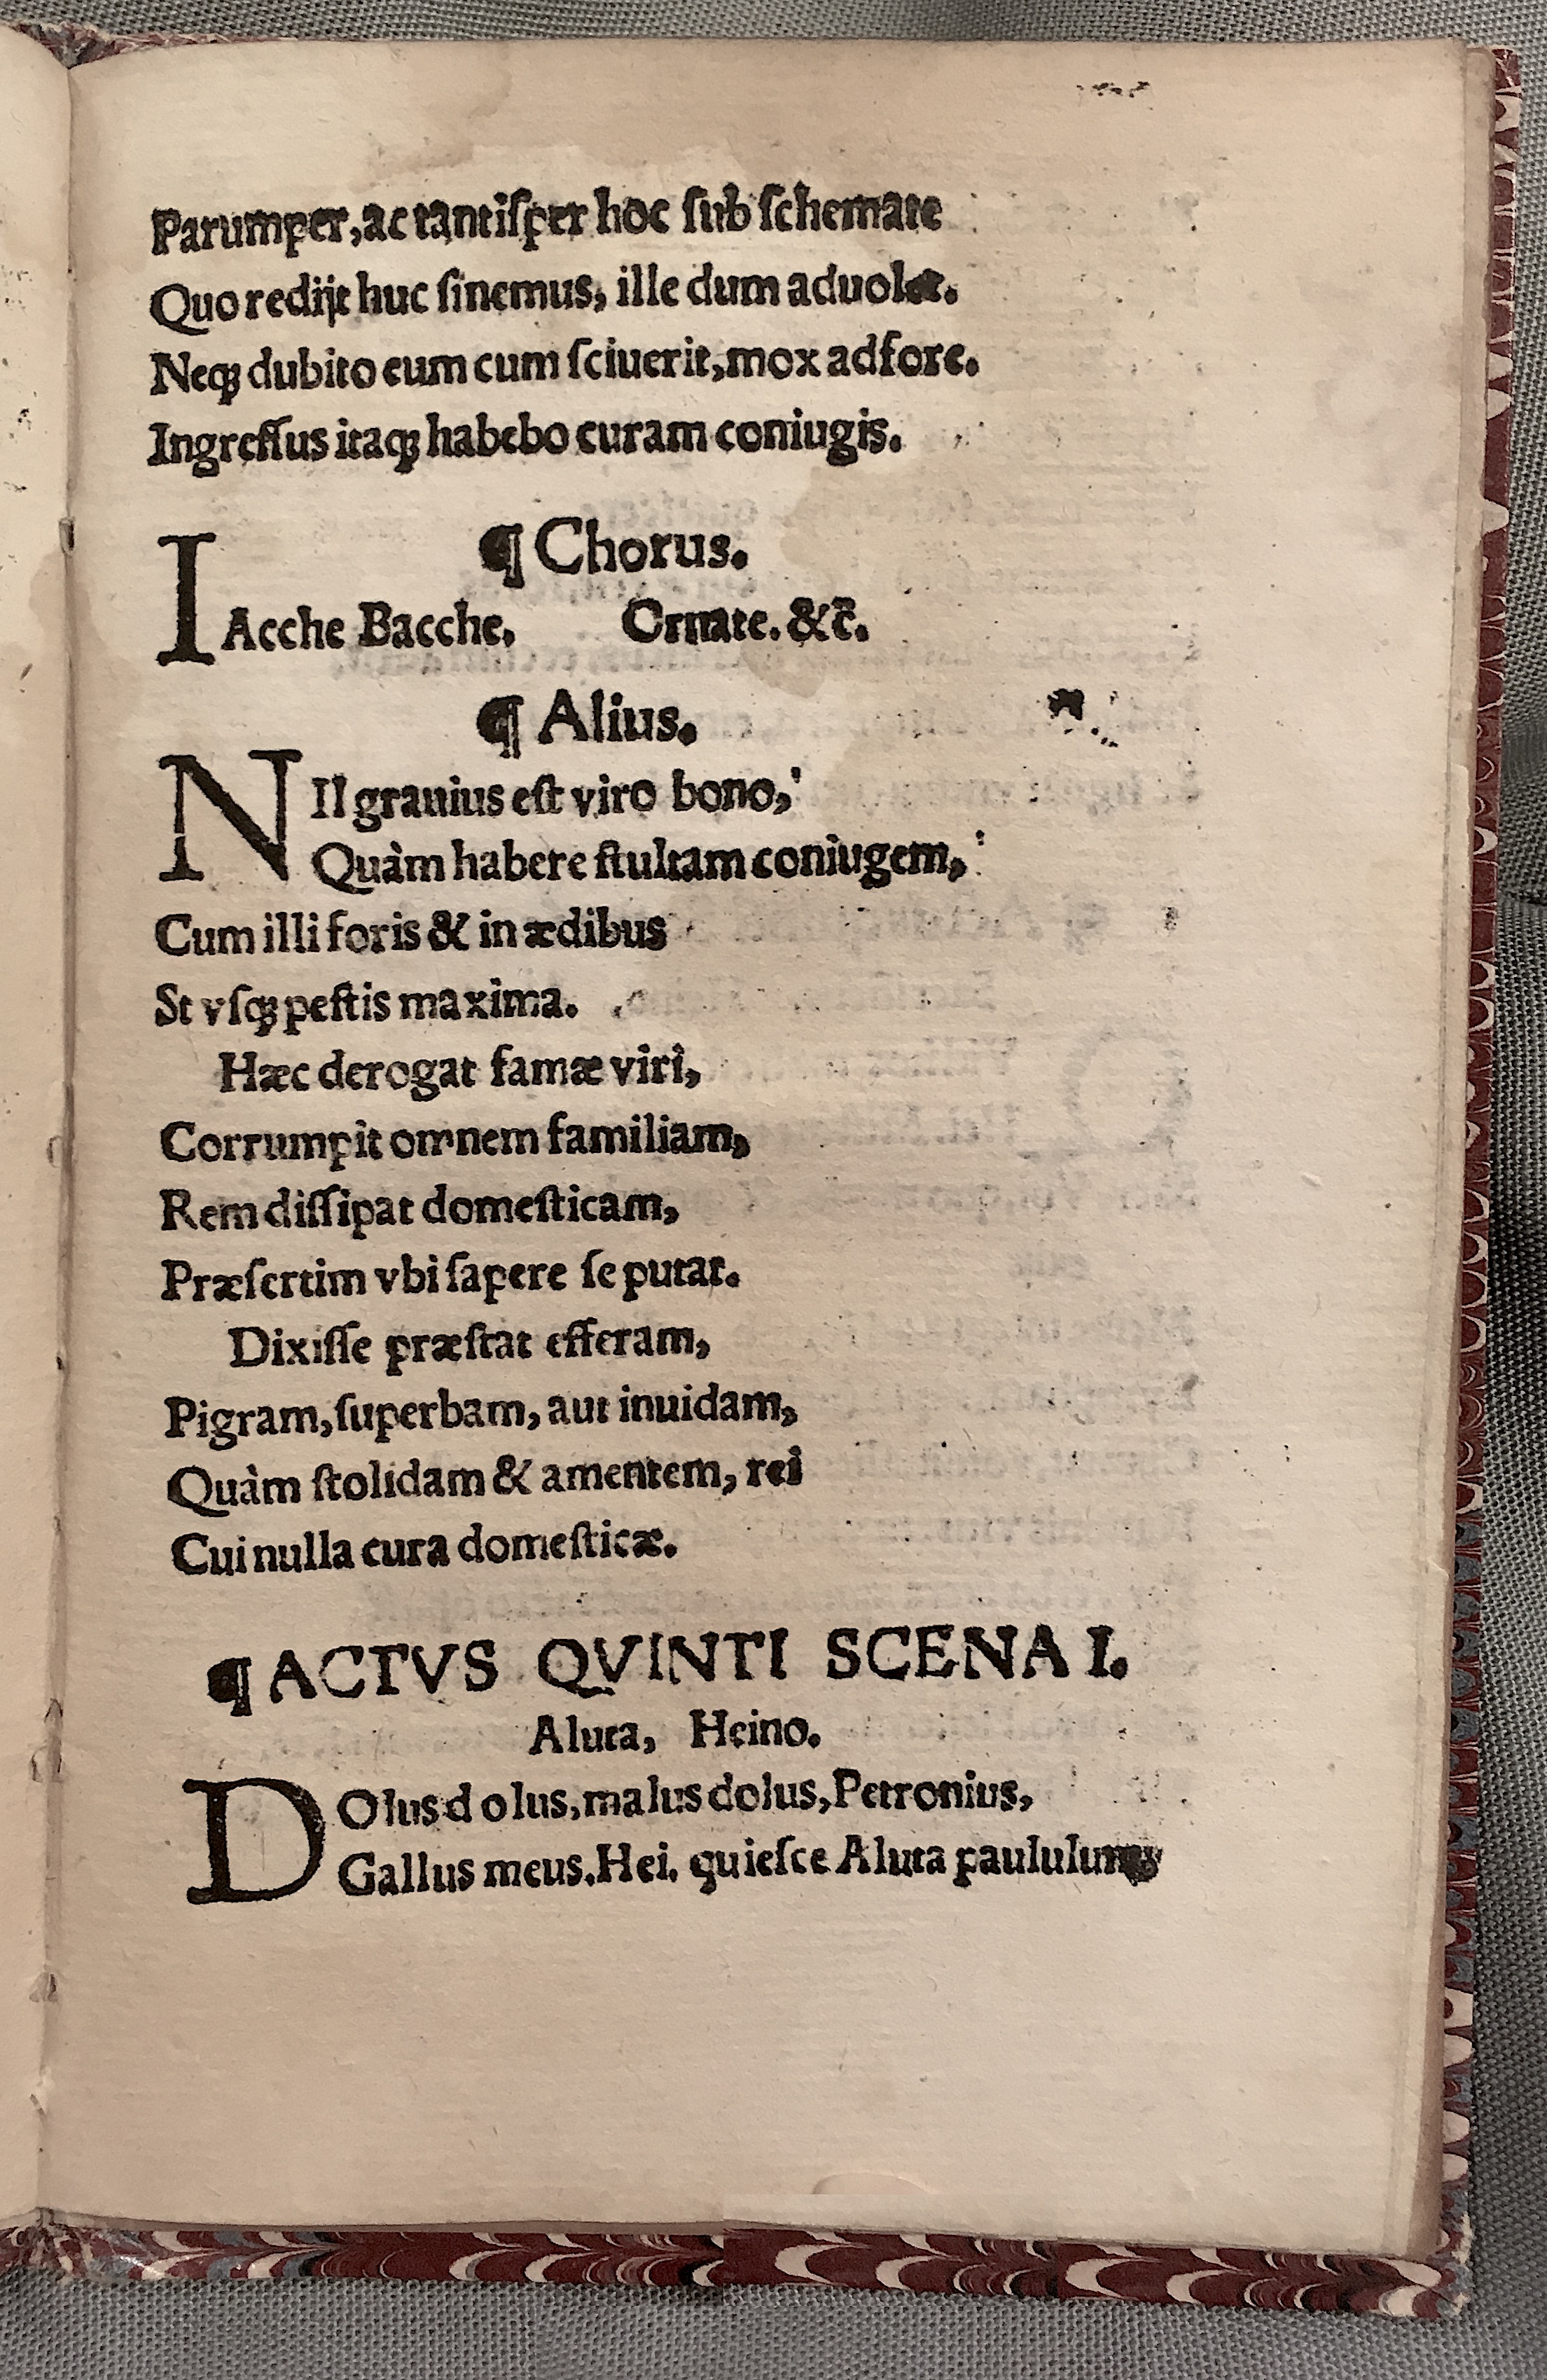 Parumper, ac tantiſper hoc ſub ſchemate
Quo redijt huc ſinemus, ille dum aduolet.
Neqꝫ dubito eum cum ſciuerit, mox adfore.
Ingreſſus itaqꝫ habebo curam coniugis.
¶ Chorus.
IAcche Bacche. Ornate. &c̄.
¶ Alius.
NIl grauius eſt viro bono,
Quàm habere ſtultam coniugem,
Cum illi foris & in ædibus
St vſqꝫ peſtis maxima.
Hæc derogat famæ viri,
Corrumpit omnem familiam,
Rem diſſipat domeſticam,
Præſertim vbi ſapere ſe putat.
Dixiſſe præſtat efferam,
Pigram, ſuperbam, aut inuidam,
Quàm ſtolidam & amentem, rei
Cui nulla cura domeſticæ.
¶ ACTVS QVINTI SCENA I.
Aluta, Heino.
DOlus dolus, malus dolus, Petronius,
Gallus meus. Hei. quieſce Aluta paululum,